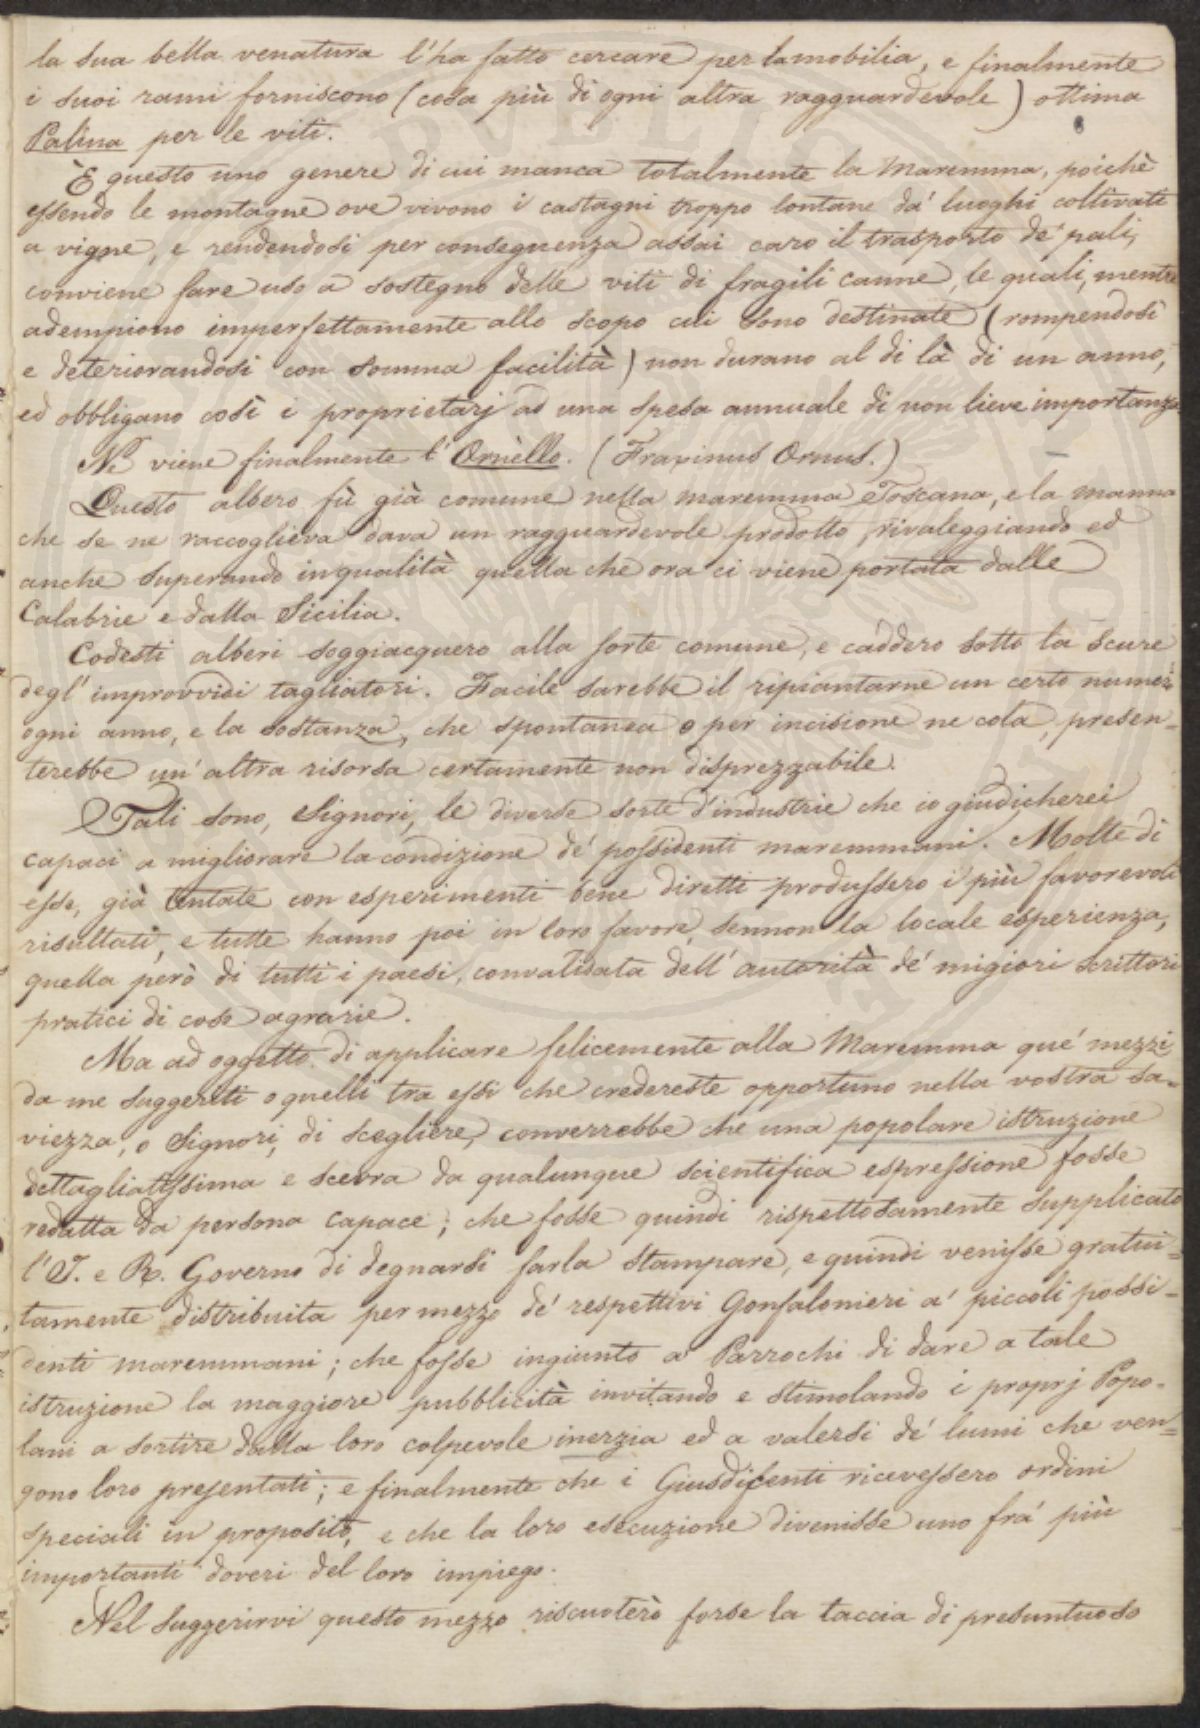 la sua bella venatura l'ha fatto cercare per la mobilia, e finalmente
i suoi rami forniscono (cosa più di ogni altra ragguardevole) ottima
Palina per le viti.
È questo uno genere di cui manca totalmente la Maremma, poichè
essendo le montagne ove vivono i castagni troppo lontane da' luoghi coltivati
a vigne, e rendendosi per conseguenza assai caro il trasporto de' pali,
conviene fare uso a sostegno delle viti di fragili canne, le quali, mentre
adempiono imperfettamente allo scopo cui sono destinate (rompendosi
e deteriorandosi con somma facilità) non durano al di là di un anno,
ed obbligano così i proprietarj ad una spesa annuale di non lieve importanza
Ne viene finalmente l'Ornèllo. (Fraxinus Ornus.)
Questo albero fù già comune nella maremma Toscana, e la manna
che se ne raccoglieva dava un ragguardevole prodotto, rivaleggiando ed
anche superando in qualità quella che ora ci viene portata dalle
Calabrie e dalla Sicilia.
Codesti alberi soggiacquero alla sorte comune, e caddero sotto la scure
degl' improvvidi tagliatori. Facile sarebbe il ripiantarne un certo numero
ogni anno, e la sostanza, che spontanea o per incisione ne cola, presen-
terebbe un' altra risorsa certamente non disprezzabile.
Tali sono, Signori, le diverse sorte d'industrie che io giudicherei
capaci a migliorare la condizione de' possidenti maremmani. Molte di
esse, già tentate con esperimenti bene diretti produssero i più favorevoli
risultati, e tutte hanno poi in loro favore, sennon la locale esperienza,
quella però di tutti i paesi, convalisata dell' autorità de' migiori scrittori
pratici di cose agrarie.
Ma ad oggetto di applicare felicemente alla Maremma que' mezzi
da me suggeriti o quelli tra essi che credereste opportuno nella vostra sa-
viezza, o Signori, di scegliere, converrebbe che una popolare istruzione
dettagliatissima e scevra da qualunque scientifica espressione fosse
redatta da persona capace; che fosse quindi rispettosamente supplicato
l'I. e R. Governo di degnarsi farla stampare, e quindi venisse gratui-
tamente distribuita per mezzo de' respettivi Gonfalonieri a' piccoli possi-
denti maremmani; che fosse ingiunto a' Parrochi di dare a tale
istruzione la maggiore pubblicità invitando e stimolando i proprj Popo-
lani a sortire dalla loro colpevole inerzia ed a valersi de' lumi che ven-
gono loro presentati; e finalmente che i Giusdicenti ricevessero ordini
speciali in proposito, e che la loro esecuzione divenisse uno fra' più
importanti doveri del loro impiego.
Nel suggerirvi questo mezzo riscuoterò forse la taccia di presuntuoso